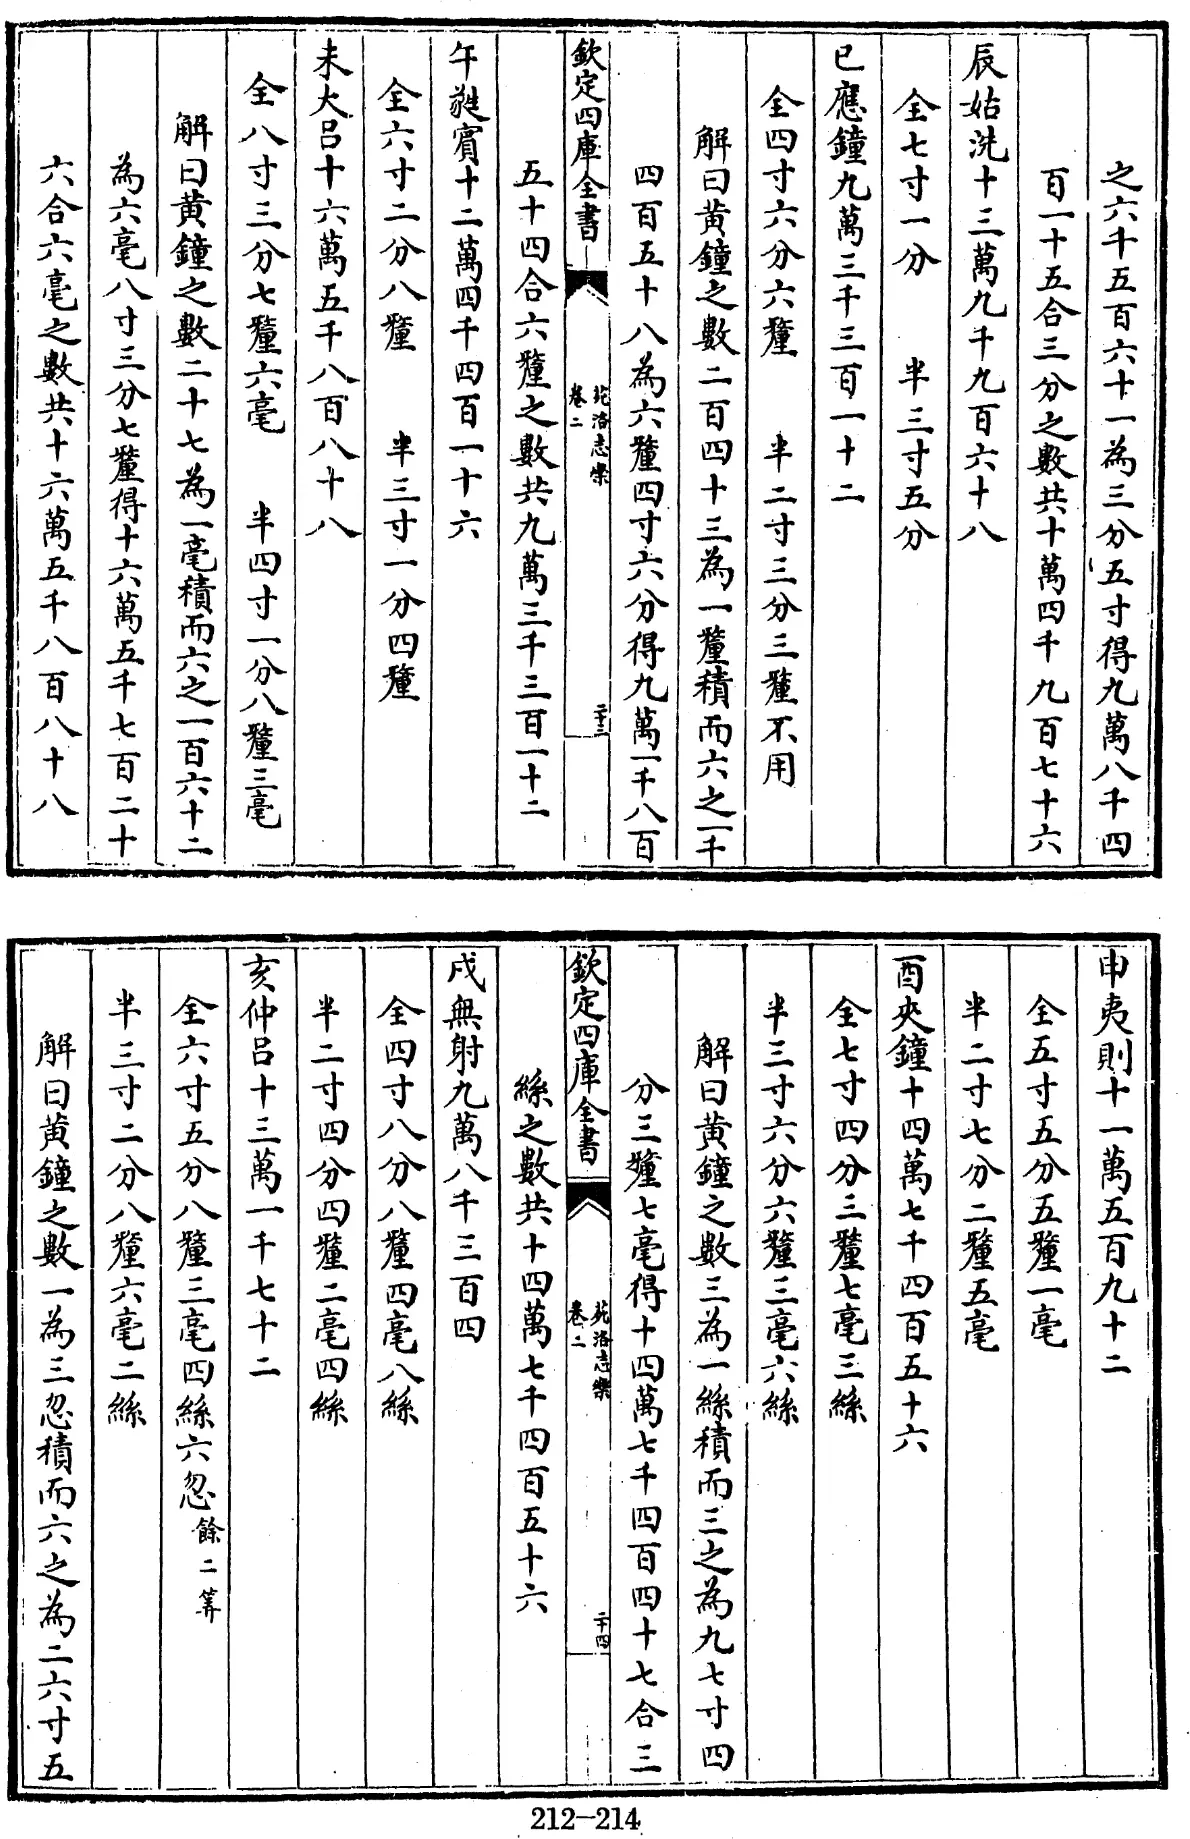 之六千五百六十一為三分五寸得九萬八千四
百一十五合三分之數共十萬四千九百七十六
辰姑洗十三萬九千九百六十八
全七寸一分 半三寸五分
已應鐘九萬三千三百一十二
全四寸六分六釐 半二寸三分三釐不用
解曰黄鐘之數二百四十三為一釐積而六之一千
四百五十八為六釐四寸六分得九萬一千八百
欽定四庫全書
苑洛志樂
卷二
二十三
五十四合六釐之數共九萬三千三百一十二
午蕤賓十二萬四千四百一十六
全六寸二分八釐 半三寸一分四釐
未大吕十六萬五千八百八十八
全八寸三分七釐六毫 半四寸一分八釐三毫
解曰黄鐘之數二十七為一毫積而六之一百六十二
為六毫八寸三分七釐得十六萬五千七百二十
六合六毫之數共十六萬五千八百八十八
申夷則十一萬五百九十二
全五寸五分五釐一毫
半二寸七分二釐五毫
酉夾鐘十四萬七千四百五十六
全七寸四分三釐七毫三絲
半三寸六分六釐三毫六絲
解曰黄鐘之數三為一絲積而三之為九七寸四
分三釐七毫得十四萬七千四百四十七合三
欽定四庫全書
苑洛志樂
卷二
二十四
絲之數共十四萬七千四百五十六
戌無射九萬八千三百四
全四寸八分八釐四毫八絲
半二寸四分四釐二毫四絲
亥仲吕十三萬一千七十二
全六寸五分八釐三毫四絲六忽餘二筭
半三寸二分八釐六毫二絲
解曰黄鐘之數一為三忽積而六之為二六寸五
212—214